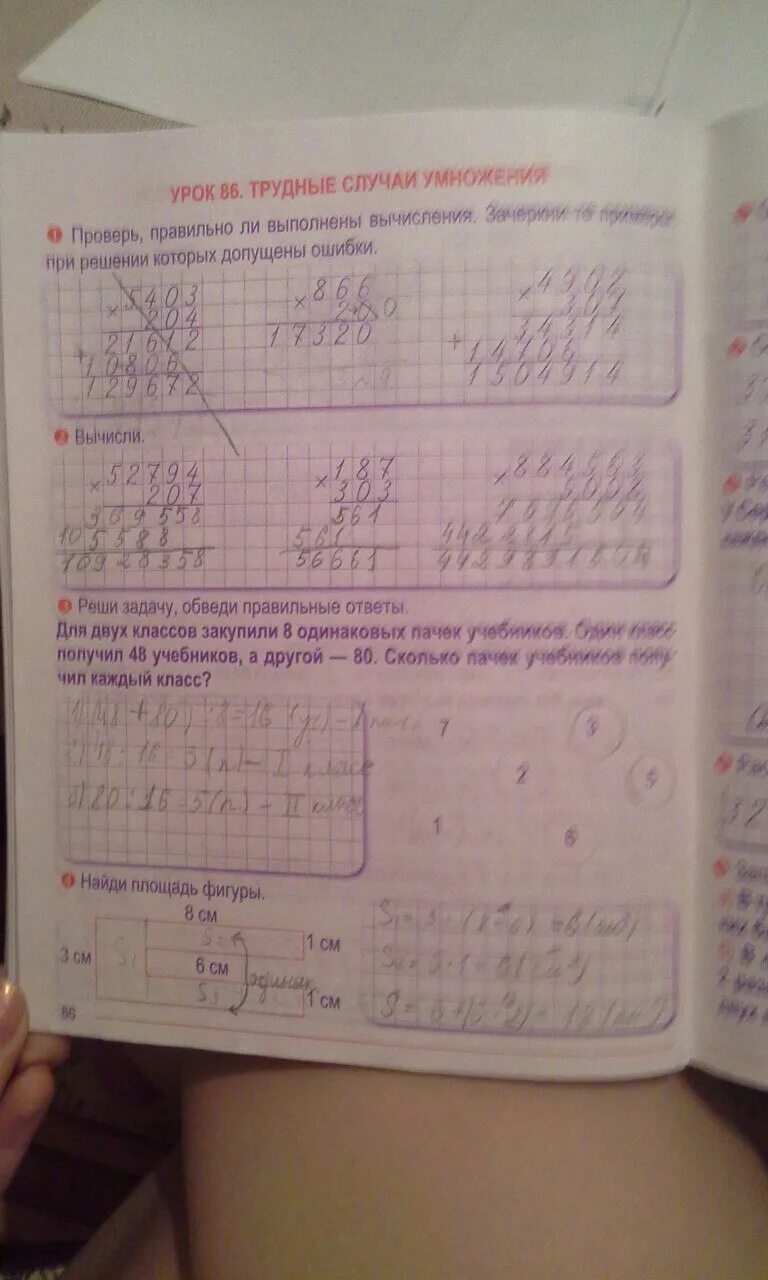 УРОК 86. ТРУДНЫЕ СЛУЧАИ УМНОЖЕНИЯ
1 Проверь, правильно ли выполнены вычисления. Зачеркни те примеры
при решении которых допущены ошибки.
× 5403
204
21612
+
10806
129672
× 866
200
17320
× 4902
307
34314
+ 14706
1504914
2 Вычисли.
× 52794
207
369558
105588
10928358
× 187
303
561
561
56661
3 Реши задачу, обведи правильные ответы.
Для двух классов закупили 8 одинаковых пачек учебников. Один класс
получил 48 учебников, а другой — 80. Сколько пачек учебников полу-
чил каждый класс?
1) (48+80):8=16 (уч)
3 (п) – I класс
80:16=5(п) – II класс
7
3
2
5
1
6
4 Найди площадь фигуры.
8 см
3 см
S1
S2
1 см
6 см
одинак
S3
1 см
86